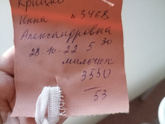 Крицкс
Инна №3468
Александровна
28.10.22 5 30
мальчик
3550
53